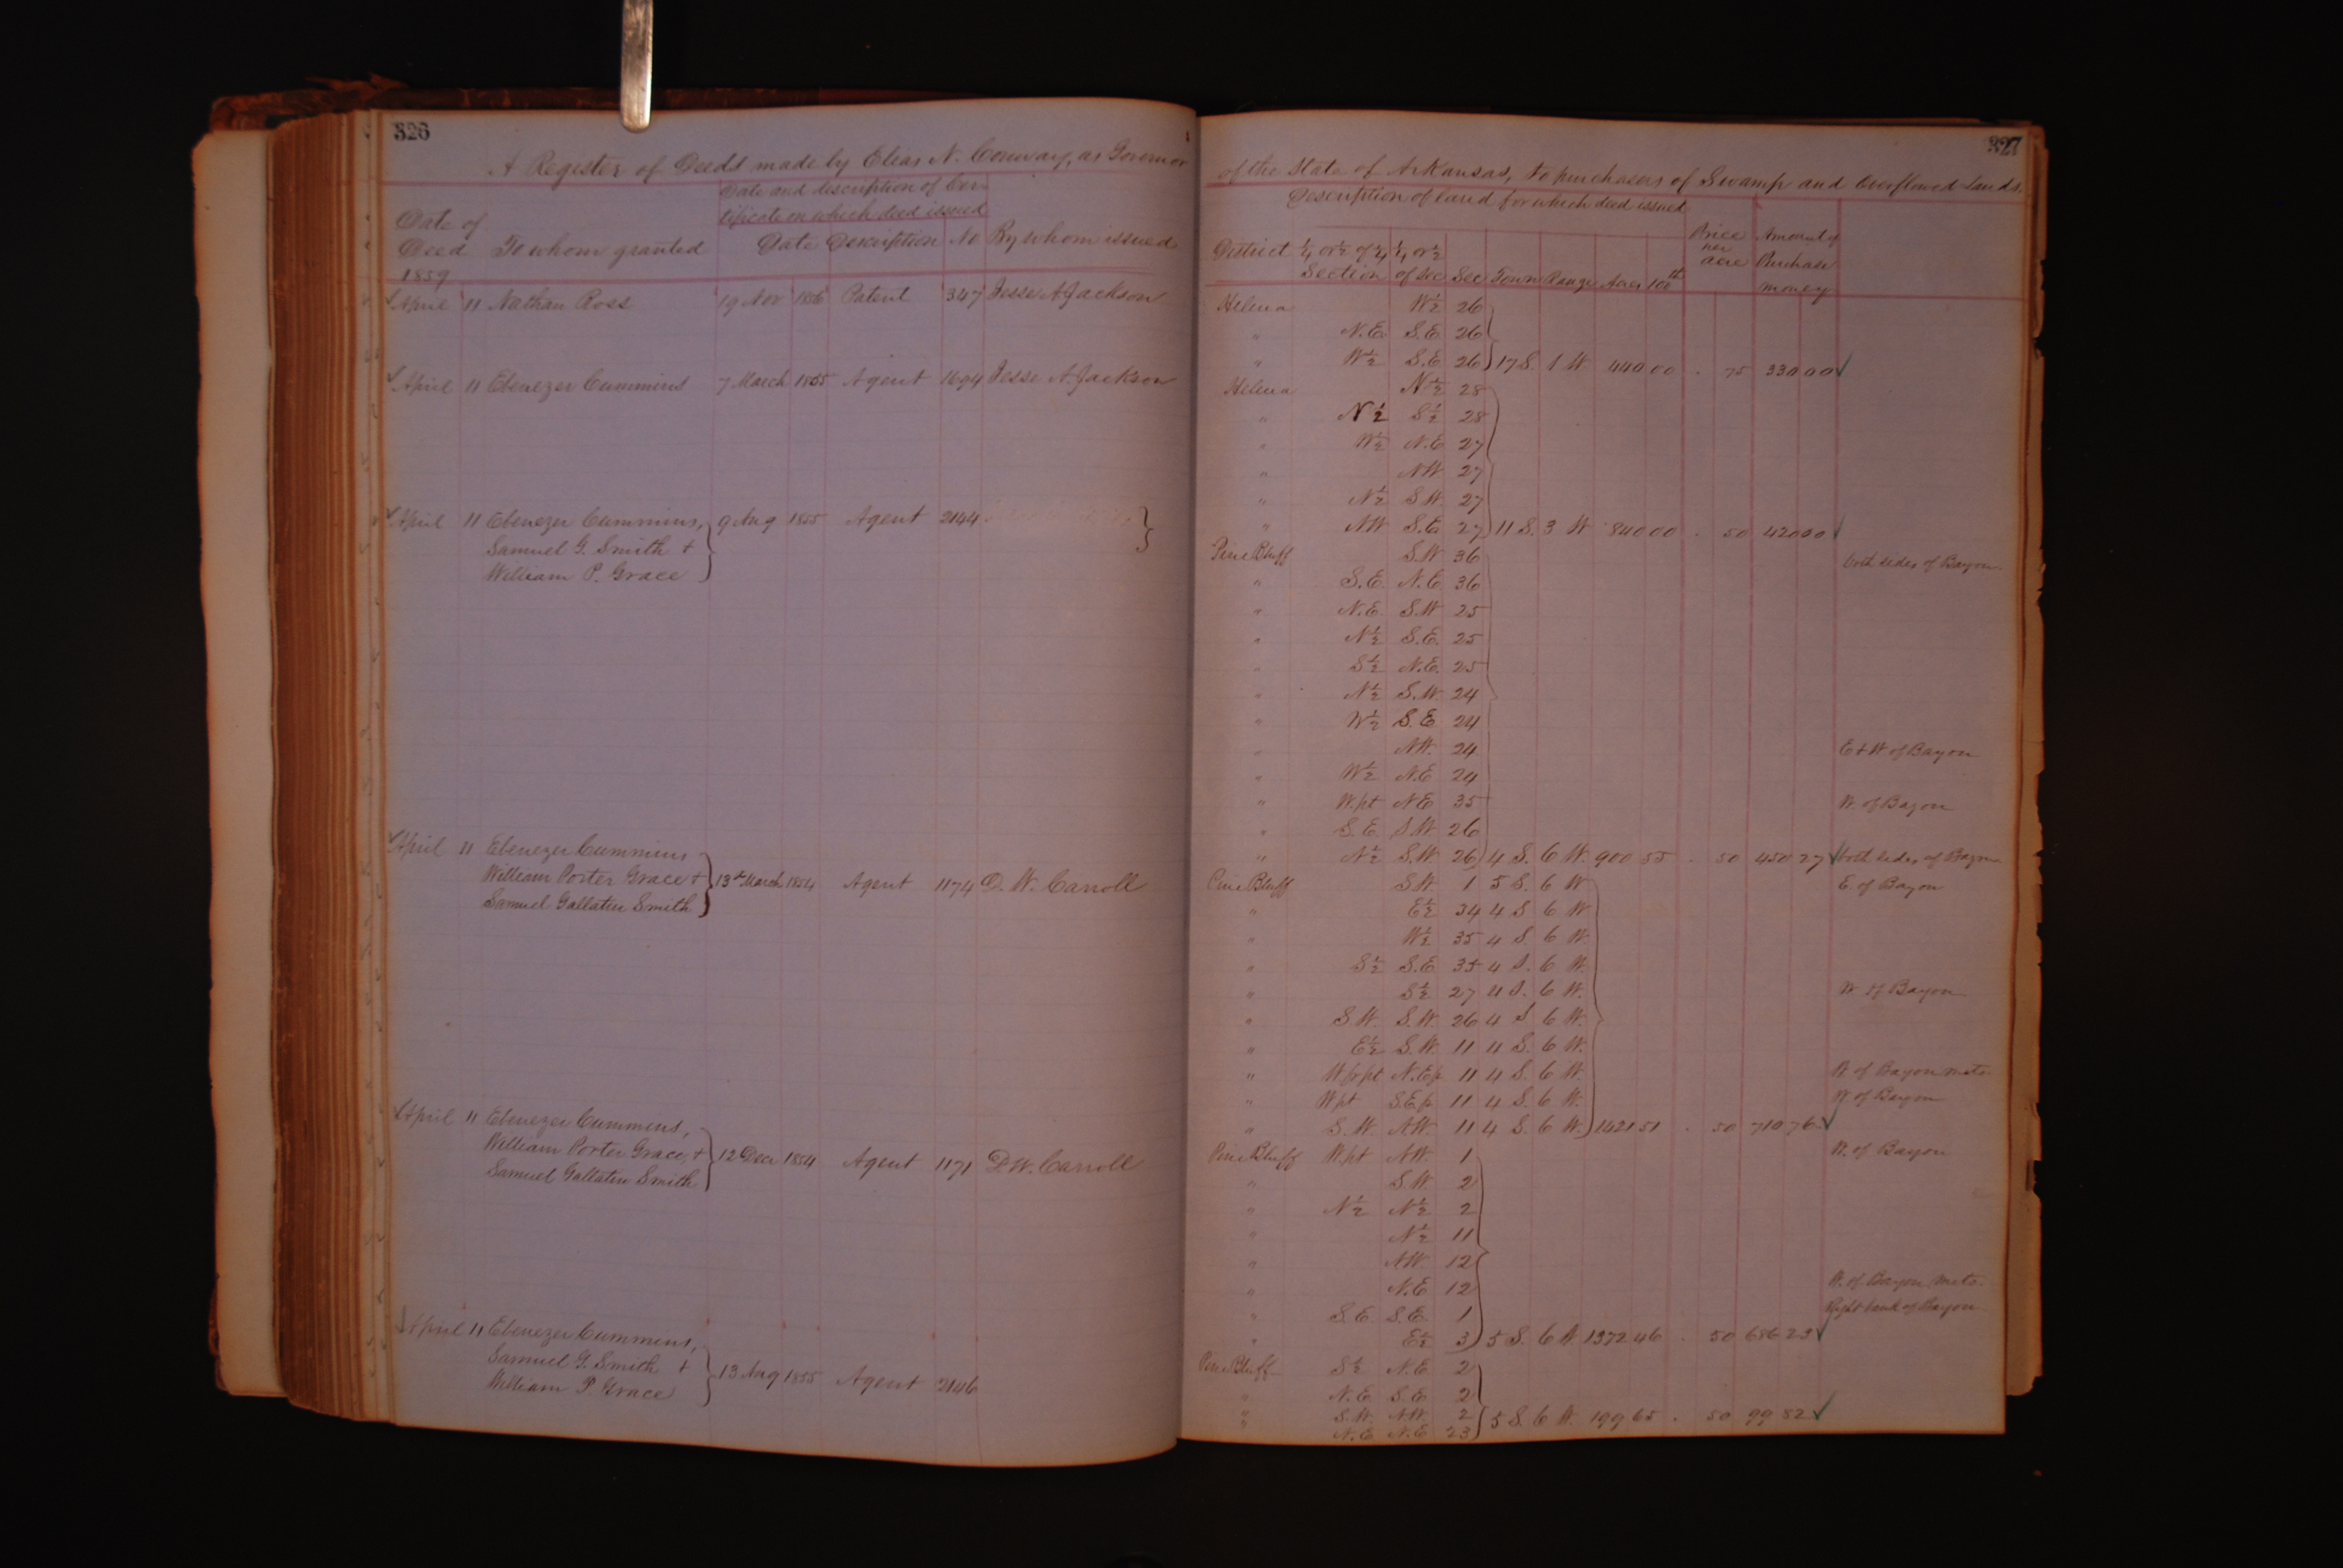 326
A Register of Deeds made by Elias N. Conway, as Governor
Date and description of Cer-
tificate on which deed issued
Date of
Deed To whom granted Date Description No By whom issued
1859
April 11 Nathan Ross 19 Nov 1856 Patent 347 Jesse A. Jackson
April 11 Ebenezer Cummins 7 March 1855 Agent 1694 Jesse A. Jackson
April 11 Ebenezer Cummins, 9 Aug 1855 Agent 2144
Samuel G. Smith +
William P. Grace
April 11 Ebenezer Cummins
William Porter Grace + 13th March 1854 Agent 1174 D. W. Carroll
Samuel Gallatin Smith
April 11 Ebenezer Cummins,
William Porter Grace, + 12 Decr 1854 Agent 1171 D. W. Carroll
Samuel Gallatin Smith
April 11 Ebenezer Cummins,
Samuel G. Smith + 13 Aug 1855 Agent 2146
William P. Grace
327
of the State of Arkansas, to purchasers of Swamp and Overflowed Lands.
Description of land for which deed issued
District 1/4 or 1/2 of 1/4 1/4 or 1/2 Price per acre Amount of
Section of sec Sec Town Range Acres 100th Purchase
money
Helena W 1/2 26
" N.E. S.E. 26
" W 1/2 S.E. 26 17 S. 1 W. 440 00 . 75 330 00
Helena N 1/2 28
" N 1/2 S 1/2 28
" W 1/2 N.E. 27
" N.W. 27
" N 1/2 S.W. 27
" N.W. S.E. 27 11 S. 3 W 840 00 . 50 420 00
Pine Bluff S.W. 36 both sides of Bayou
" S.E. N.E. 36
" N.E. S.W. 25
" N 1/2 S.E. 25
" S 1/2 N.E. 25
" N 1/2 S.W. 24
" W 1/2 S.E. 24
" N.W. 24 E + W of Bayou
" W 1/2 N.E. 24
" W. pt N.E. 35 W. of Bayou
" S.E. S.W. 26
" N 1/2 S.W. 26 4 S. 6 W. 900 55 . 50 450 27 both sides of Bayou
Pine Bluff S.W. 1 5 S. 6 W E. of Bayou
" E 1/2 34 4 S 6 W
" W 1/2 35 4 S. 6 W.
" S 1/2 S.E. 35 4 S. 6 W.
" S 1/2 27 4 S. 6 W. W of Bayou
" S.W. S.W. 26 4 S 6 W.
" E 1/2 S.W. 11 4 S. 6 W.
" W. fr pt N.E. fr 11 4 S. 6 W. W. of Bayou meto
" W pt S.E. fr 11 4 S. 6 W. W of Bayou
" S.W. N.W. 11 4 S. 6 W. 1421 51 . 50 710 76
Pine Bluff W. pt N.W. 1 W. of Bayou
" S.W. 2
" N 1/2 N 1/2 2
" N 1/2 11
" N.W. 12
" N.E. 12 W. of Bayou Meto.
" S.E. S.E. 1 Right bank of Bayou
" E 1/2 3 5 S. 6 W. 1372 46 . 50 686 23
Pine Bluff S 1/2 N.E. 2
" N.E. S.E. 2
" S.W. N.W. 2 5 S. 6 W. 199 65 . 50 99 82
" N.E. N.E. 23